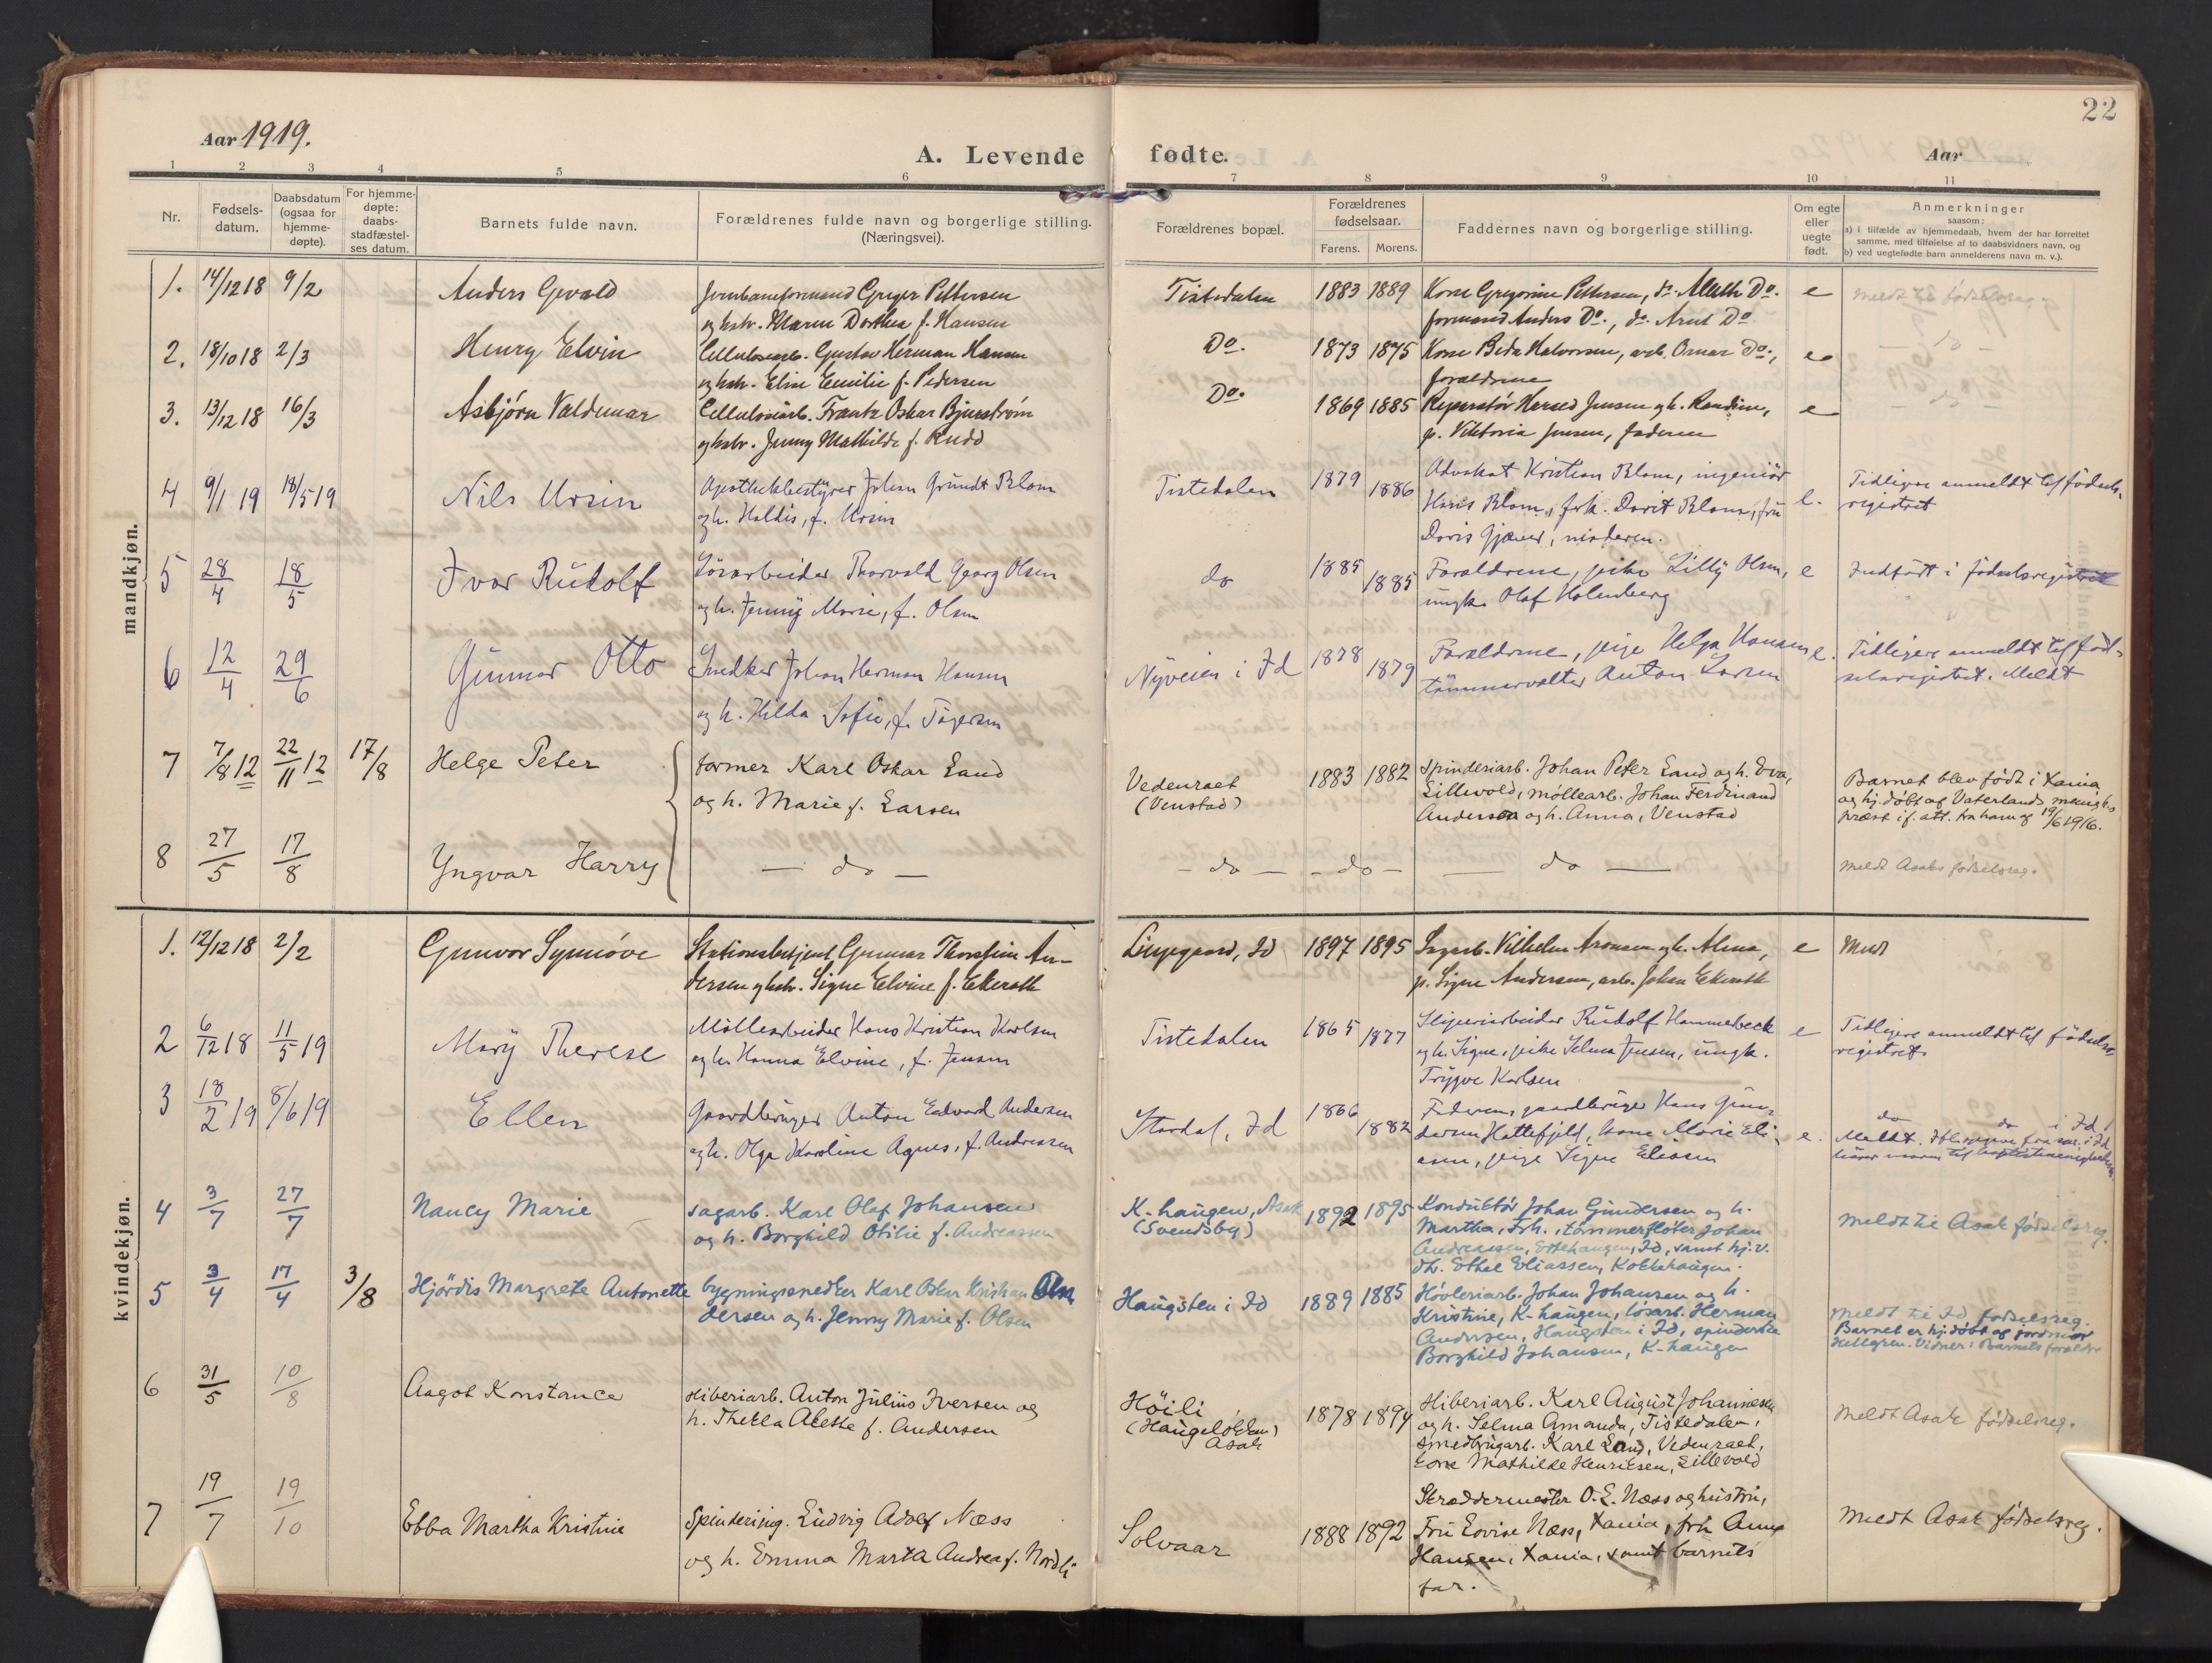 22
Aar 1919.
A. Levende fødte.
Aar
1 2 3 4 5 6 7 8 9 10 11
Nr.
Fødsels-
datum.
Daabsdatum
(ogsaa for
hjemme-
døpte).
For hjemme-
døpte:
daabs-
stadfæstel-
ses datum.
Barnets fulde navn.
Forældrenes fulde navn og borgerlige stilling.
(Næringsvei).
Forældrenes bopæl.
Forældrenes
fødselsaar.
Farens. Morens.
Faddernes navn og borgerlige stilling.
Om egte
eller
uegte
født.
Anmerkninger
saasom:
a) i tilfælde av hjemmedaab, hvem der har forrettet
samme, med tilføielse af to daabsvidners navn, og
b) ved uegtefødte barn anmelderens navn m. v.).
mandkjøn.
1. 14/12 18 9/2 Anders Gevald
Jernbaneformand Greger Pettersen
og hstr. Maren Dorthea f. Hansen
Tistedalen 1883 1889
Kone Gregorine Pettersen, do. Do.
formand Anders Do., do. Arnt Do
e
meldt til fødselsreg.
2. 18/10 18 2/3 Henry Elvin
Cellulosearb. Gustav Herman Hansen
og hstr. Elise Emilie f. Pedersen
Do. 1873 1875
Kone Beda Halvorsen, arb. Osmar Do.,
forældrene
e
— do —
3. 13/12 18 16/3 Asbjørn Valdemar
Cellulosearb. Frantz Oskar Bjurstrøm
og hstr. Jenny Mathilde f. Rudd
Do. 1869 1885
Reparatør Jensen og h. Randine,
p. Viktoria Jensen, faderen
e
— do —
4 9/1 19 18/5 19 Nils Ursin
Apothekbestyrer Johan Grundt Blom
og h. Haldis, f. Ursin
Tistedalen 1879 1886
Advokat Kristian Blom, ingeniør
Hans Blom, frk. Dorit Blom, fru
Doris Gjæver, moderen.
e.
Tidligere anmeldt til fødsels-
registret
5 28/4 18/5 Ivar Rudolf
Løsarbeider Thorvald Georg Olsen
og h. Jenny Marie, f. Olsen
do 1885 1885
Forældrene, pike Lilly Olsen,
ungk. Olaf Holmberg
e
Indført i fødselsregistret
6 12/4 29/6 Gunnar Otto
Snedker Johan Herman Hansen
og h. Hilda Sofie, f. Tøgersen
Nyveien i Id 1878 1879
Forældrene, pige Helga Hansen
tømmervalter Anton Larsen
e.
Tidligere anmeldt til fød-
selsregistret. Meldt
7 7/8 12 22/11 12 17/8 Helge Peter
former Karl Oskar Lund
og h. Marie f. Larsen
Vedenraet
(Venstad)
1883 1882
Spinderiarb. Johan Peter Lund og h. Eva,
Lillevold, møllearb. Johan Ferdinand
Andersen og h. Anna, Venstad
Barnet blev født i Xania
og hj. døbt af Vaterlands menighs
præst if. att. fra ham af 19/6 1916.
8 27/5 17/8 Yngvar Harry
— do —
— do — — do —
— do —
meldt Asaks fødselsreg.
kvindekjøn.
1. 12/12 18 2/2 Gunvor Synnöve
Stationsbetjent Gunnar Thorstein An-
dersen og hstr. Signe Elvine f. Ekeroth
Liegaard, Id 1897 1895
Sagarb. Vilhelm Aronsen og h. Alma,
p. Signe Andersen, arb. Johan Ekeroth
e
Meldt
2 6/12 18 11/5 19 Mary Therese
Møllearbeider Hans Kristian Karlsen
og h. Hanna Elvine, f. Jensen
Tistedalen 1865 1877
Sliperiarbeider Rudolf Hammebeck
og h. Signe, pike Selma Jensen, ungk.
Trygve Karlsen
e
Tidligere anmeldt til fødsels-
registret.
3 18/2 19 8/6 19 Ellen
Gaardbruger Anton Edvard Andersen
og h. Olga Karoline Agnes, f. Andreassen
Stordal, Id 1866 1882
Faderen, gaardbruger Hans Gun-
dersen Hattefjell, kone Marie Eli-
asen, pige Signe Eliasen
e.
do do i Id
Meldt.
4 3/7 27/7 Nancy Marie
sagarb. Karl Olaf Johansen
og h. Borghild Otilie f. Andreassen
K-haugen, Asak
(Svendsby)
1892 1895
Konduktør Johan Gundersen og h.
Martha, Frh., tømmerfløter Johan
Andreassen, Id, samt hj.v.
dtr. Ethel Eliassen, Kokkehaugen.
Meldt til Asak fødselsreg.
5 3/4 17/4 3/8 Hjördis Margrete Antonette
bygningssnedker Karl Kristian
dersen og h. Jenny Marie f. Olsen
Haugsten i Id 1889 1885
Høvleriarb. Johan Johansen og h.
Kristine, K-haugen, løsarb. Herman
Andersen, Haugsten i Id, spinderske
Borghild Johansen, K-haugen
Meldt til Id fødselsreg.
Barnet er hj. døbt af jordmor
Kellgren. Vidner: Barnets forældre
6 31/5 10/8 Aagot Konstance
sliberiarb. Anton Julius Iversen og
h. Thekla Alette f. Andersen
Höili
(Haugeløkken)
Asak
1878 1894
sliberiarb. Karl August Johannesen
og h. Selma Amanda, Tistedalen,
smedbrugarb. Karl Lund, Vedenraet,
kone Mathilde Henriksen, Lillevold
Meldt Asak fødselsreg.
7 19/7 19/10 Ebba Martha Kristine
Spinderiing. Ludvig Adolf Næss
og h. Emma Marta Andrea f. Nordli
Solvaar 1888 1892
Skræddermester O. L. Næss og hustru,
Fru Lovise Næss, Xania, frk Anna
Hansen, Xania, samt barnets
far.
Meldt Asak fødselsreg.